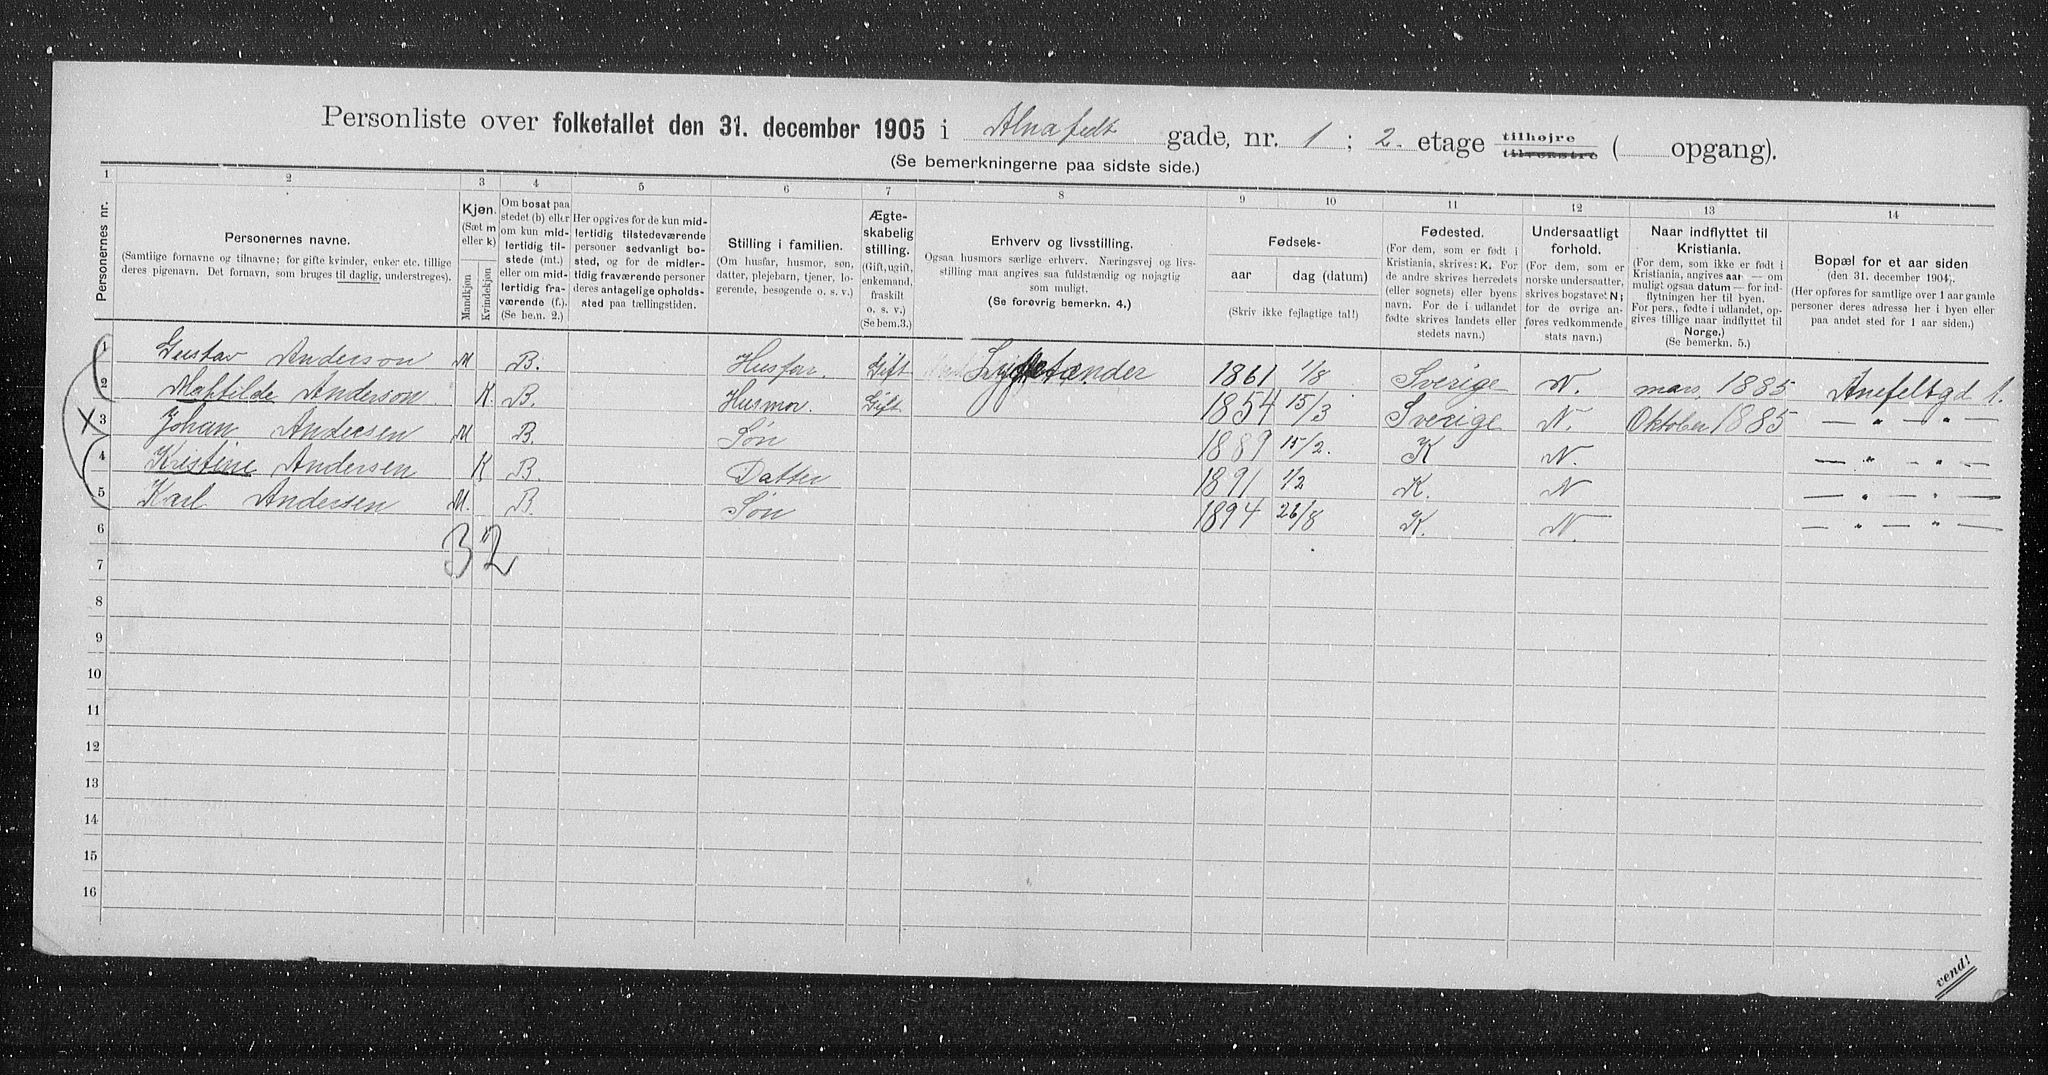 Personliste over folketallet den 31. december 1905 i Alnafedt gade, nr. 1 ; 2. etage tilhøjre tilvenstre ( opgang).
(Se bemerkningerne paa sidste side.)
1 2 3 4 5 6 7 8 9 10 11 12 13 14
Personernes nr.
Personernes navne.
(Samtlige fornavne og tilnavne; for gifte kvinder, enker etc. tillige
deres pigenavn. Det fornavn, som bruges til daglig, understreges).
Kjøn.
(Sæt m
eller k)
Mandkjøn
Kvindekjøn
Om bosat paa
stedet (b) eller
om kun mid-
lertidig til-
stede (mt.)
eller om mid-
lertidig fra-
værende (f.).
(Se bem. 2.)
Her opgives for de kun mid-
lertidig tilstedeværende
personer sedvanligt bo-
sted, og for de midler-
tidig fraværende personer
deres antagelige opholds-
sted paa tællingstiden.
Stilling i familien.
(Om husfar, husmor, søn,
datter, plejebarn, tjener, lo-
gerende, besøgende o. s. v.)
Ægte-
skabelig
stilling.
(Gift, ugift,
enkemand,
fraskilt
o. s. v.)
(Se bem. 3.)
Erhverv og livsstilling.
Ogsaa husmors særlige erhverv. Næringsvej og livs-
stilling maa angives saa fuldstændig og nøjagtig
som muligt.
(Se forøvrig bemerkn. 4.)
Fødsels-
aar dag (datum)
(Skriv ikke fejlagtige tal!)
Fødested.
(For dem, som er født i
Kristiania, skrives: K. For
de andre skrives herredets
(eller sognets) eller byens
navn. For de i udlandet
fødte skrives landets eller
stedets navn.)
Undersaatligt
forhold.
(For dem, som er
norske undersaatter,
skrives bogstavet N;
for de øvrige an-
føres vedkommende
stats navn.)
Naar indflyttet til
Kristiania.
(For dem, som ikke er født i
Kristiania, angives aar — om
muligt ogsaa datum — for ind-
flytningen her til byen.
For pers., fødte i udlandet, op-
gives tillige naar indflyttet til
Norge.)
(Se bemerkn. 5.)
Bopæl for et aar siden
(den 31. december 1904).
(Her opføres for samtlige over 1 aar gamle
personer deres adresse her i byen eller
paa andet sted for 1 aar siden.)
1 Gustav Anderson M B. Husfar. Gift 1861 1/8 Sverige N. mars, 1885 Anefeltgd 1.
2 Mathilde Anderson K. B. Husmor. Gift 1854 15/3 Sverige N. Oktober 1885 — " — " —
X 3 Johan Andersen M B. Søn 1889 15/2. K N. — " — " —
4 Kristine Andersen K B. Datter 1891 1/2 K. N — " — " —
5 Karl Andersen M. B. Søn 1894 26/8 K. N. — " — " —
6
32
7
8
9
10
11
12
13
14
15
16
vend!